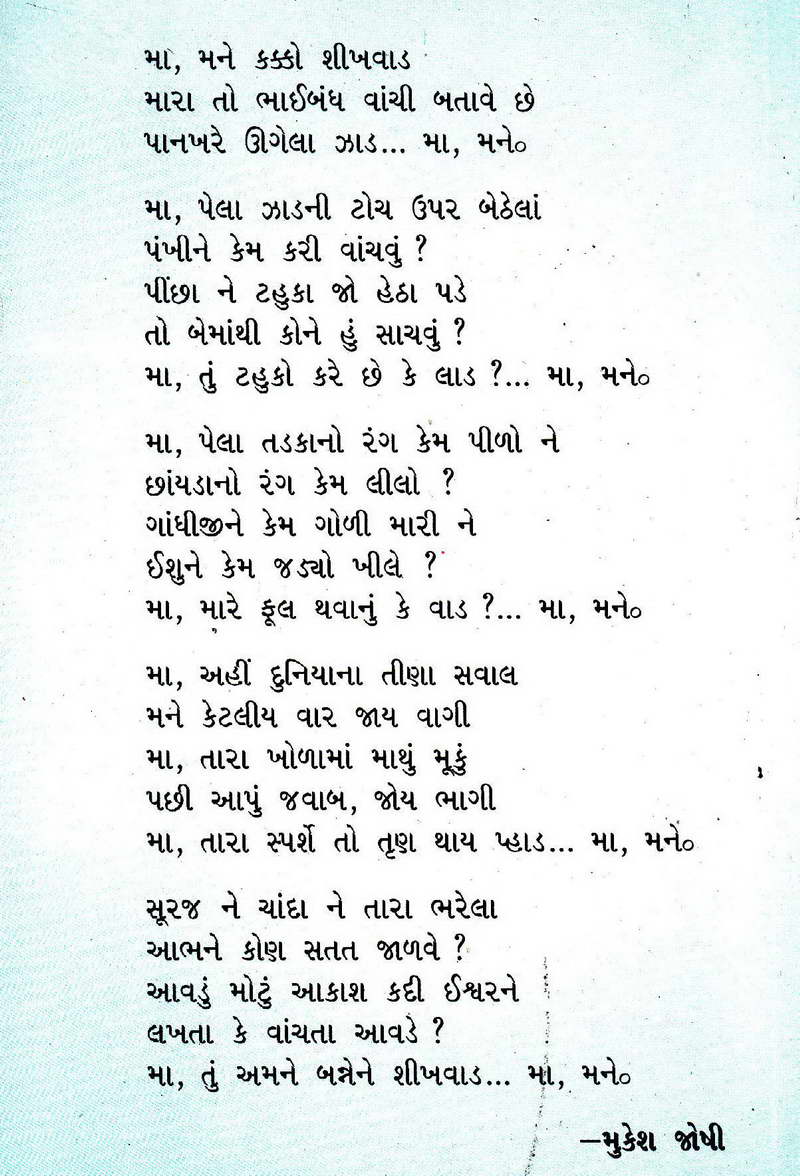 મા, મને કક્કો શીખવાડ
મારા તો ભાઈબંધ વાંચી બતાવે છે
પાનખરે ઊગેલા ઝાડ... મા, મને૦
મા, પેલા ઝાડની ટોચ ઉપર બેઠેલાં
પંખીને કેમ કરી વાંચવું ?
પીંછા ને ટહુકા જો હેઠા પડે
તો બેમાંથી કોને હું સાચવું ?
મા, તું ટહુકો કરે છે કે લાડ ?... મા, મને૦
મા, પેલા તડકાનો રંગ કેમ પીળો ને
છાંયડાનો રંગ કેમ લીલો ?
ગાંધીજીને કેમ ગોળી મારી ને
ઈશુને કેમ જડ્યો ખીલે ?
મા, મારે ફૂલ થવાનું કે વાડ ?... મા, મને૦
મા, અહીં દુનિયાના તીણા સવાલ
મને કેટલીય વાર જાય વાગી
મા, તારા ખોળામાં માથું મૂકું
પછી આપું જવાબ, જોય ભાગી
મા, તારા સ્પર્શે તો તૃણ થાય પ્હાડ... મા, મને૦
સૂરજ ને ચાંદા ને તારા ભરેલા
આભને કોણ સતત જાળવે ?
આવડું મોટું આકાશ કદી ઈશ્વરને
લખતા કે વાંચતા આવડે ?
મા, તું અમને બન્નેને શીખવાડ... મા, મને૦
–મુકેશ જોષી